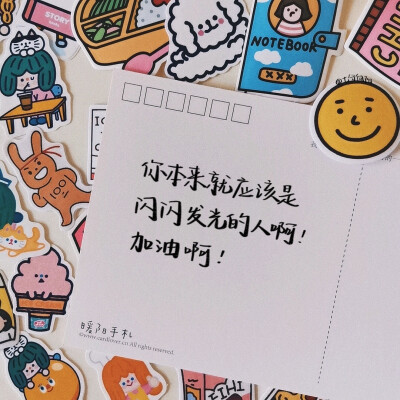 STORY
NOTEBOOK
你本来就应该是
闪闪发光的人啊!
加油啊!
暖阳手札